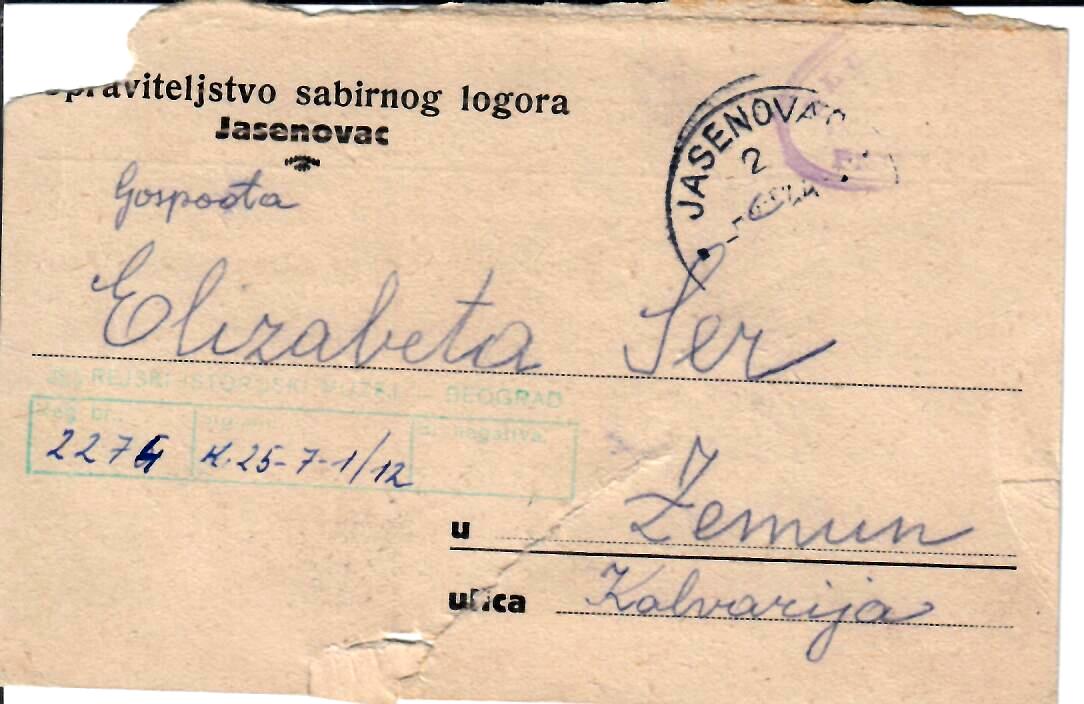 praviteljstvo sabirnog logora
Jasenovac
JASENOVAC
2
Gospođa
Elizabeta Ser
REJSKI ISTORIJSKI MUZEJ – BEOGRAD
Reg. br.
negativa
2274
K. 25-7-1/12
u Zemun
ulica Kalvarija